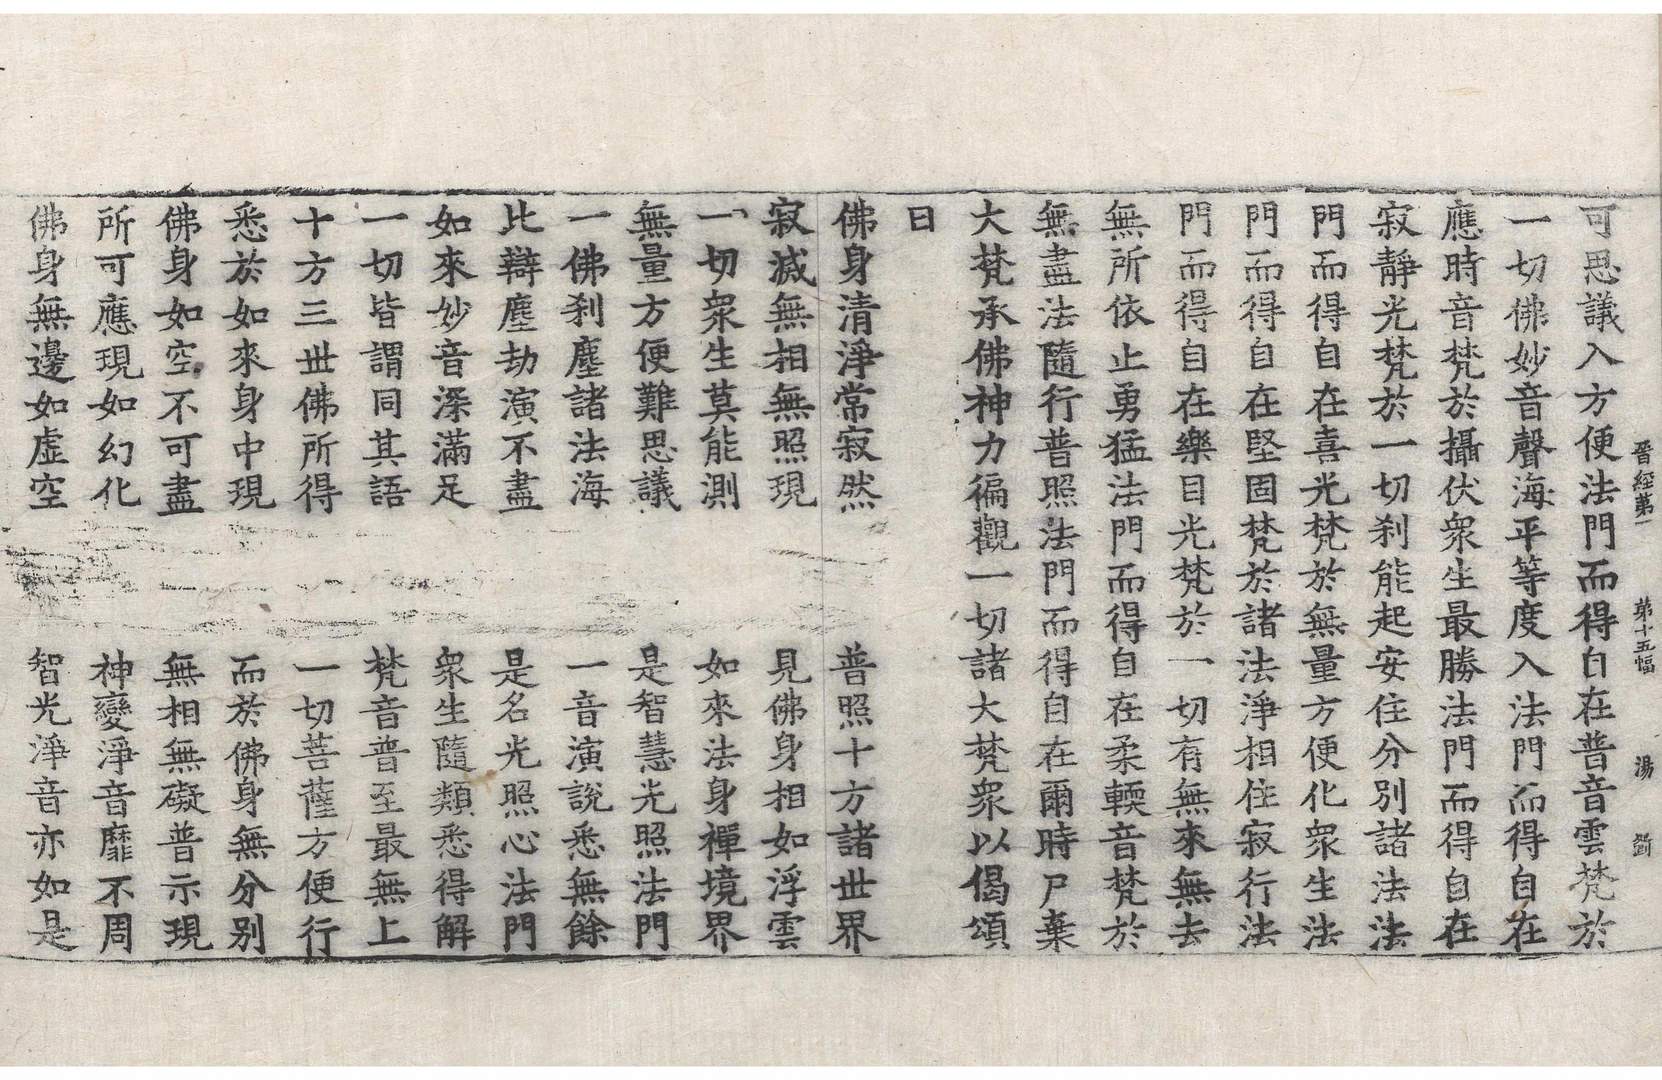 晉經第一 第十五幅 湯 劉
可思議入方便法門而得自在普音雲梵於
一切佛妙音聲海平等度入法門而得自在
應時音梵於攝伏衆生最勝法門而得自在
寂靜光梵於一切刹能起安住分別諸法法
門而得自在喜光梵於無量方便化衆生法
門而得自在堅固梵於諸法淨相住寂行法
門而得自在樂目光梵於一切有無來無去
無所依止勇猛法門而得自在柔輭音梵於
無盡法隨行普照法門而得自在爾時尸棄
大梵承佛神力徧觀一切諸大梵衆以偈頌
曰
佛身清淨常寂然 普照十方諸世界
寂滅無相無照現 見佛身相如浮雲
一切衆生莫能測 如來法身禪境界
無量方便難思議 是智慧光照法門
一佛刹塵諸法海 一音演說悉無餘
比辯塵劫演不盡 是名光照心法門
如來妙音深滿足 衆生隨類悉得解
一切皆謂同其語 梵音普至最無上
十方三世佛所得 一切菩薩方便行
悉於如來身中現 而於佛身無分別
佛身如空不可盡 無相無礙普示現
所可應現如幻化 神變淨音靡不周
佛身無邊如虛空 智光淨音亦如是